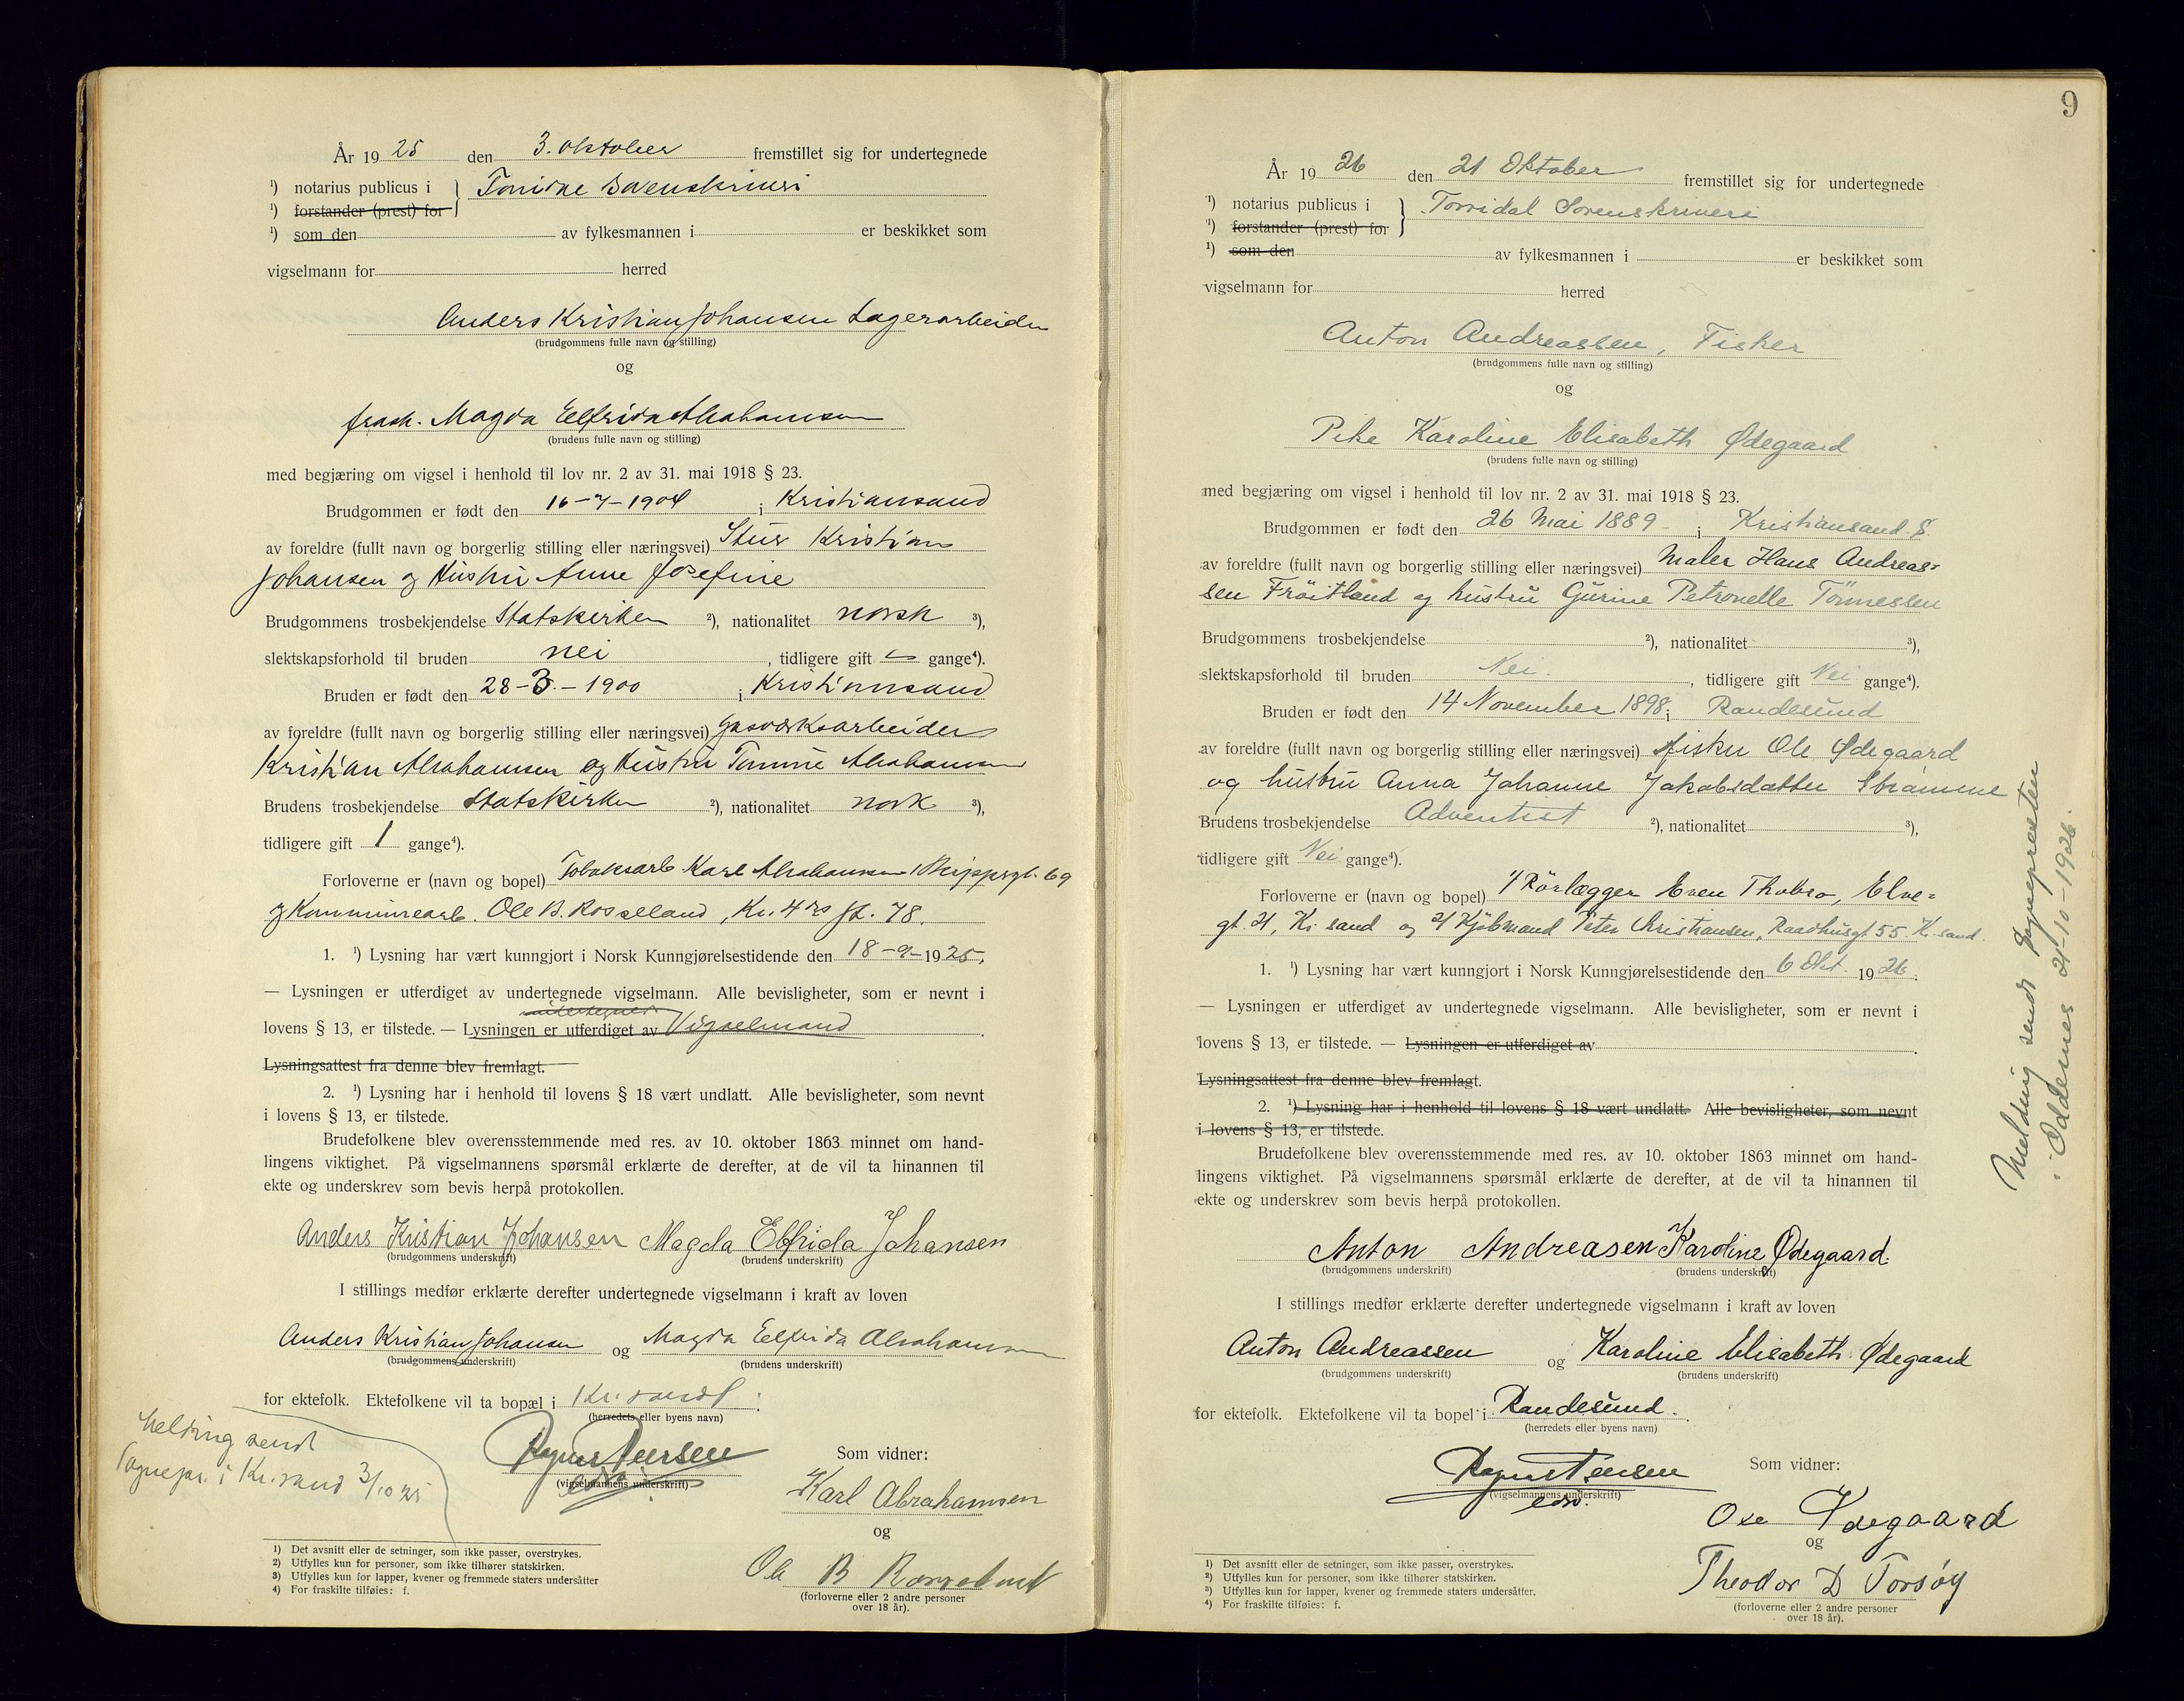 År 1925 den 3. oktober fremstillet sig for undertegnede
¹) notarius publicus i } Torridal Sorenskriveri
¹) forstander (prest) for
¹) som den av fylkesmannen i er beskikket som
vigselmann for herred
Anders Kristian Johansen Lagerarbeider
(brudgommens fulle navn og stilling)
og
frask. Magda Elfrida Abrahamsen
(brudens fulle navn og stilling)
med begjæring om vigsel i henhold til lov nr. 2 av 31. mai 1918 § 23.
Brudgommen er født den 16-7-1904 i Kristiansand
av foreldre (fullt navn og borgerlig stilling eller næringsvei) Stuer Kristian
Johansen og Hustru Anne Josefine
Brudgommens trosbekjendelse Statskirken ²), nationalitet norsk ³),
slektskapsforhold til bruden nei , tidligere gift gange⁴).
Bruden er født den 28-3.-1900 i Kristiansand
av foreldre (fullt navn og borgerlig stilling eller næringsvei) Gasværksarbeider
Kristian Abrahamsen og Hustru Tomine Abrahamsen
Brudens trosbekjendelse Statskirken ²), nationalitet norsk ³),
tidligere gift 1 gange⁴).
Forloverne er (navn og bopel) Tobaksarb. Karl Abrahamsen, Skippergt. 69
og Kommunearb. Ole B. Rosseland, Kr. 4des gt. 78.
1. ¹) Lysning har vært kunngjort i Norsk Kunngjørelsestidende den 18-9-1925.
— Lysningen er utferdiget av undertegnede vigselmann. Alle bevisligheter, som er nevnt i
undertegnede
lovens § 13, er tilstede. — Lysningen er utferdiget av Vigselmand .
Lysningsattest fra denne blev fremlagt.
2. ¹) Lysning har i henhold til lovens § 18 vært undlatt. Alle bevisligheter, som nevnt
i lovens § 13, er tilstede.
Brudefolkene blev overensstemmende med res. av 10. oktober 1863 minnet om hand-
lingens viktighet. På vigselmannens spørsmål erklærte de derefter, at de vil ta hinannen til
ekte og underskrev som bevis herpå protokollen.
Anders Kristian Johansen Magda Elfrida Johansen
(brudgommens underskrift) (brudens underskrift)
I stillings medfør erklærte derefter undertegnede vigselmann i kraft av loven
Anders Kristian Johansen og Magda Elfrida Abrahamsen
(brudgommens underskrift) (brudens underskrift)
for ektefolk. Ektefolkene vil ta bopæl i Kr.sand S .
(herredets eller byens navn)
Melding sendt
Sognepr. i Kr.sand 3/10 25
(vigselmannens underskrift)
Som vidner:
Karl Abrahamsen
og
Ole B Rosseland
(forloverne eller 2 andre personer
over 18 år).
1) Det avsnitt eller de setninger, som ikke passer, overstrykes.
2) Utfylles kun for personer, som ikke tilhører statskirken.
3) Utfylles kun for lapper, kvener og fremmede staters undersåtter
4) For fraskilte tilføies: f.
9
År 1926 den 21 Oktober fremstillet sig for undertegnede
¹) notarius publicus i } Torridal Sorenskriveri
¹) forstander (prest) for
¹) som den av fylkesmannen i er beskikket som
vigselmann for herred
Anton Andreassen, Fisker
(brudgommens fulle navn og stilling)
og
Pike Karoline Elisabeth Ødegaard
(brudens fulle navn og stilling)
med begjæring om vigsel i henhold til lov nr. 2 av 31. mai 1918 § 23.
Brudgommen er født den 26 Mai 1889 i Kristiansand S.
av foreldre (fullt navn og borgerlig stilling eller næringsvei) Maler Hans Andreas-
sen Fröitland og hustru Gurine Petronelle Tönnessen
Brudgommens trosbekjendelse ²), nationalitet ³),
slektskapsforhold til bruden Nei. , tidligere gift Nei gange⁴).
Bruden er født den 14 November 1898 i Randesund
av foreldre (fullt navn og borgerlig stilling eller næringsvei) fisker Ole Ødegaard
og hustru Anna Johanne Jakobsdatter Strømme
Brudens trosbekjendelse Adventist ²), nationalitet ³),
tidligere gift Nei gange⁴).
Forloverne er (navn og bopel) 1/ Rörlægger Even Thobro, Elve-
gt. 21, Kr. sand og 2/ Kjöbmand Peter Christiansen, Raadhusgt 55 Kr. sand.
1. ¹) Lysning har vært kunngjort i Norsk Kunngjørelsestidende den 6 Okt. 1926.
— Lysningen er utferdiget av undertegnede vigselmann. Alle bevisligheter, som er nevnt i
lovens § 13, er tilstede. — Lysningen er utferdiget av .
Lysningsattest fra denne blev fremlagt.
2. ¹) Lysning har i henhold til lovens § 18 vært undlatt. Alle bevisligheter, som nevnt
i lovens § 13, er tilstede.
Brudefolkene blev overensstemmende med res. av 10. oktober 1863 minnet om hand-
lingens viktighet. På vigselmannens spørsmål erklærte de derefter, at de vil ta hinannen til
ekte og underskrev som bevis herpå protokollen.
Anton Andreasen Karoline Ødegaard.
(brudgommens underskrift) (brudens underskrift)
I stillings medfør erklærte derefter undertegnede vigselmann i kraft av loven
Anton Andreassen og Karoline Elisabeth Ødegaard
(brudgommens underskrift) (brudens underskrift)
for ektefolk. Ektefolkene vil ta bopel i Randesund.
(herredets eller byens navn)
(vigselmannens underskrift)
Som vidner:
Ole Ødegaard
og
Theodor D Torsøy
(forloverne eller 2 andre personer
over 18 år).
1) Det avsnitt eller de setninger, som ikke passer, overstrykes.
2) Utfylles kun for personer, som ikke tilhører statskirken.
3) Utfylles kun for lapper, kvener og fremmede staters undersåtter.
4) For fraskilte tilføies: f.
Melding sendt sognepresten
i Oddernes 21-10-1926.